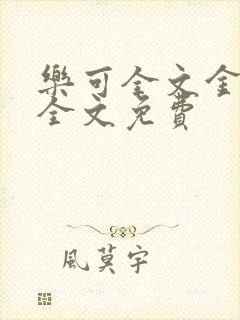 樂可全文全
全文免費
風莫宇